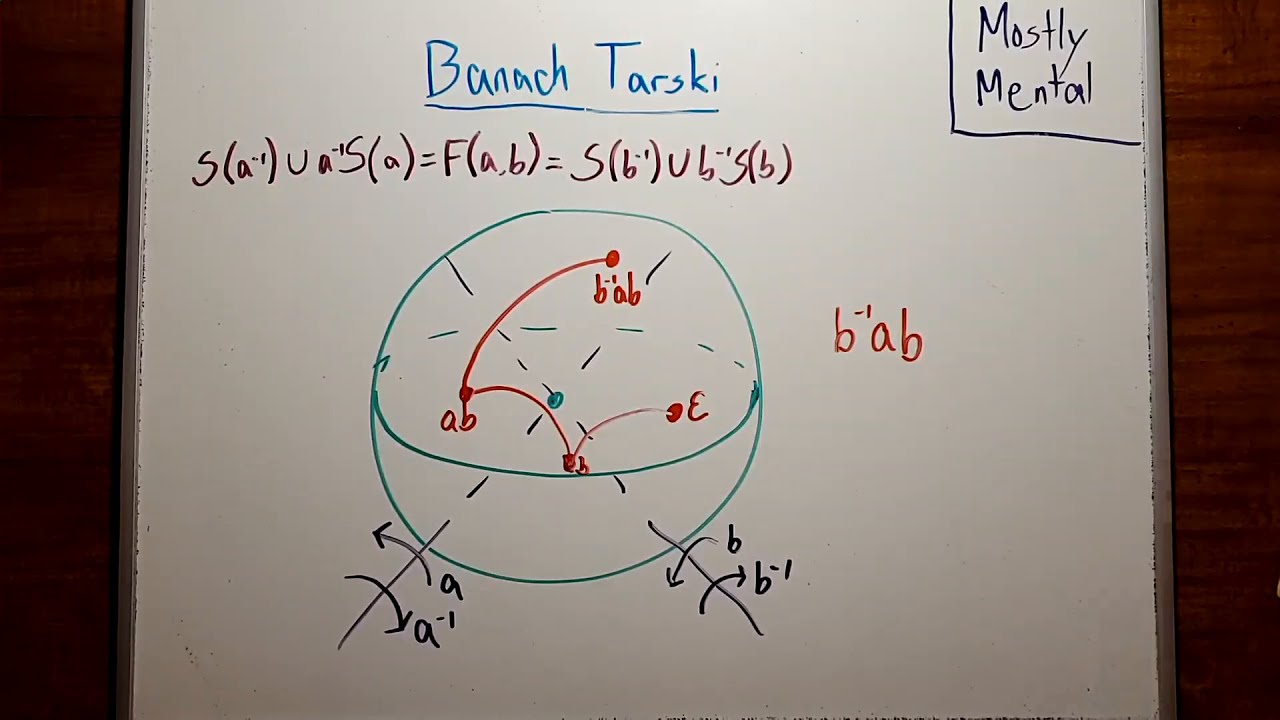 Mostly
Mental
Banach Tarski
S(a⁻¹) ∪ a⁻¹S(a) = F(a,b) = S(b⁻¹) ∪ b⁻¹S(b)
b⁻¹ab
b⁻¹ab
ab
ε
b
b
a
b⁻¹
a⁻¹